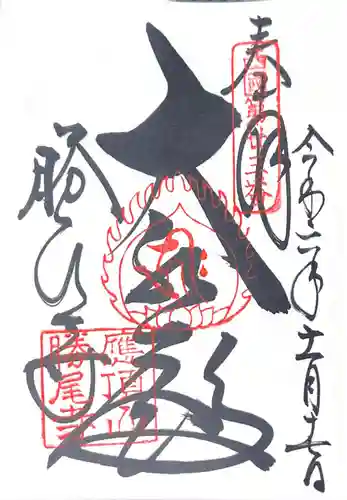 奉拝
西国第廿三番
令和二年十一月十五日
大悲殿
勝尾寺
應頂山
勝尾寺